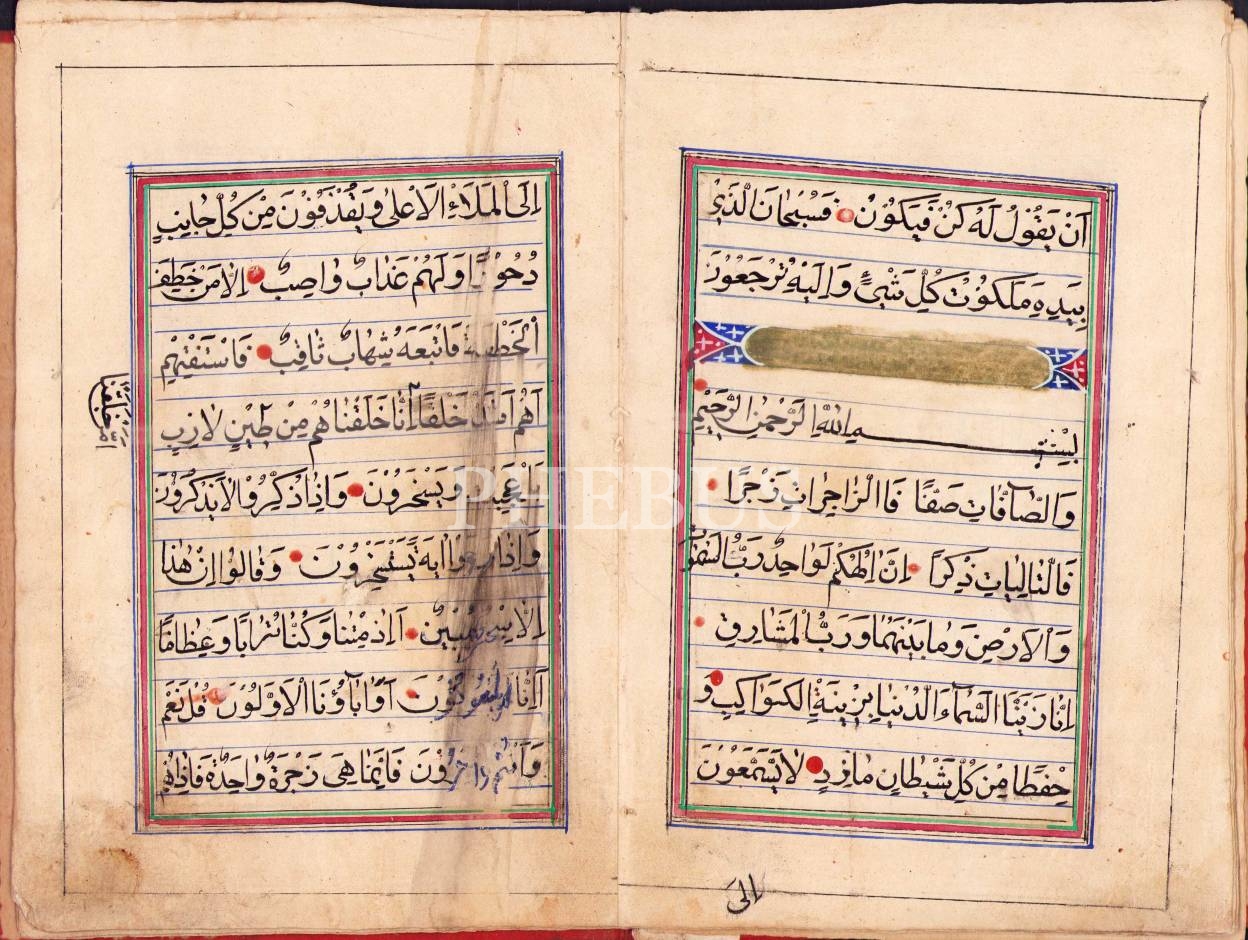 اَنْ يَقُوْلَ لَهُ كُنْ فَيَكُوْنُ فَسُبْحَانَ الَّذِىْ
بِيَدِهِ مَلَكُوْتُ كُلِّ شَيْئٍ وَاِلَيْهِ تُرْجَعُوْنَ
بِسْمِ اللهِ الرَّحْمٰنِ الرَّحِيْمِ
وَالصَّآفَّاتِ صَفًّا فَاالزَّاجِرَاتِ زَجْرًا
فَالتَّالِيَاتِ ذِكْرًا اِنَّ اِلٰهَكُمْ لَوَاحِدٌ رَبُّ السَّمٰوٰتِ
وَالْاَرْضِ وَمَا بَيْنَهُمَا وَرَبُّ الْمَشَارِقِ
اِنَّا زَيَّنَّا السَّمَآءَ الدُّنْيَا بِزِيْنَةِ الْكَوَاكِبِ وَ
حِفْظًا مِنْ كُلِّ شَيْطَانٍ مَارِدٍ لَا يَسَّمَّعُوْنَ
الىَ
اِلَى الْمَلَاءِ الْاَعْلٰى وَيُقْذَفُوْنَ مِنْ كُلِّ جَانِبٍ
دُحُوْرًا وَلَهُمْ عَذَابٌ وَاصِبٌ اِلَّا مَنْ خَطِفَ
الْخَطْفَةَ فَاَتْبَعَهُ شِهَابٌ ثَاقِبٌ فَاسْتَفْتِهِمْ
اَهُمْ اَشَدُّ خَلْقًا اِنَّا خَلَقْنَاهُمْ مِنْ طِيْنٍ لَازِبٍ
بَلْ عَجِبْتَ وَيَسْخَرُوْنَ وَاِذَا ذُكِّرُوْا لَا يَذْكُرُوْنَ
وَاِذَا رَاَوْا اٰيَةً يَسْتَسْخِرُوْنَ وَقَالُوْا اِنْ هٰذَا
اِلَّا سِحْرٌ مُبِيْنٌ ءَاِذَا مِتْنَا وَكُنَّا تُرَابًا وَعِظَامًا
ءَاِنَّا لَمَبْعُوْثُوْنَ اَوَاٰبَآؤُنَا الْاَوَّلُوْنَ قُلْ نَعَمْ
وَاَنْتُمْ دَاخِرُوْنَ فَاِنَّمَا هِىَ زَجْرَةٌ وَاحِدَةٌ فَاِذَاهُمْ
PHEBUS